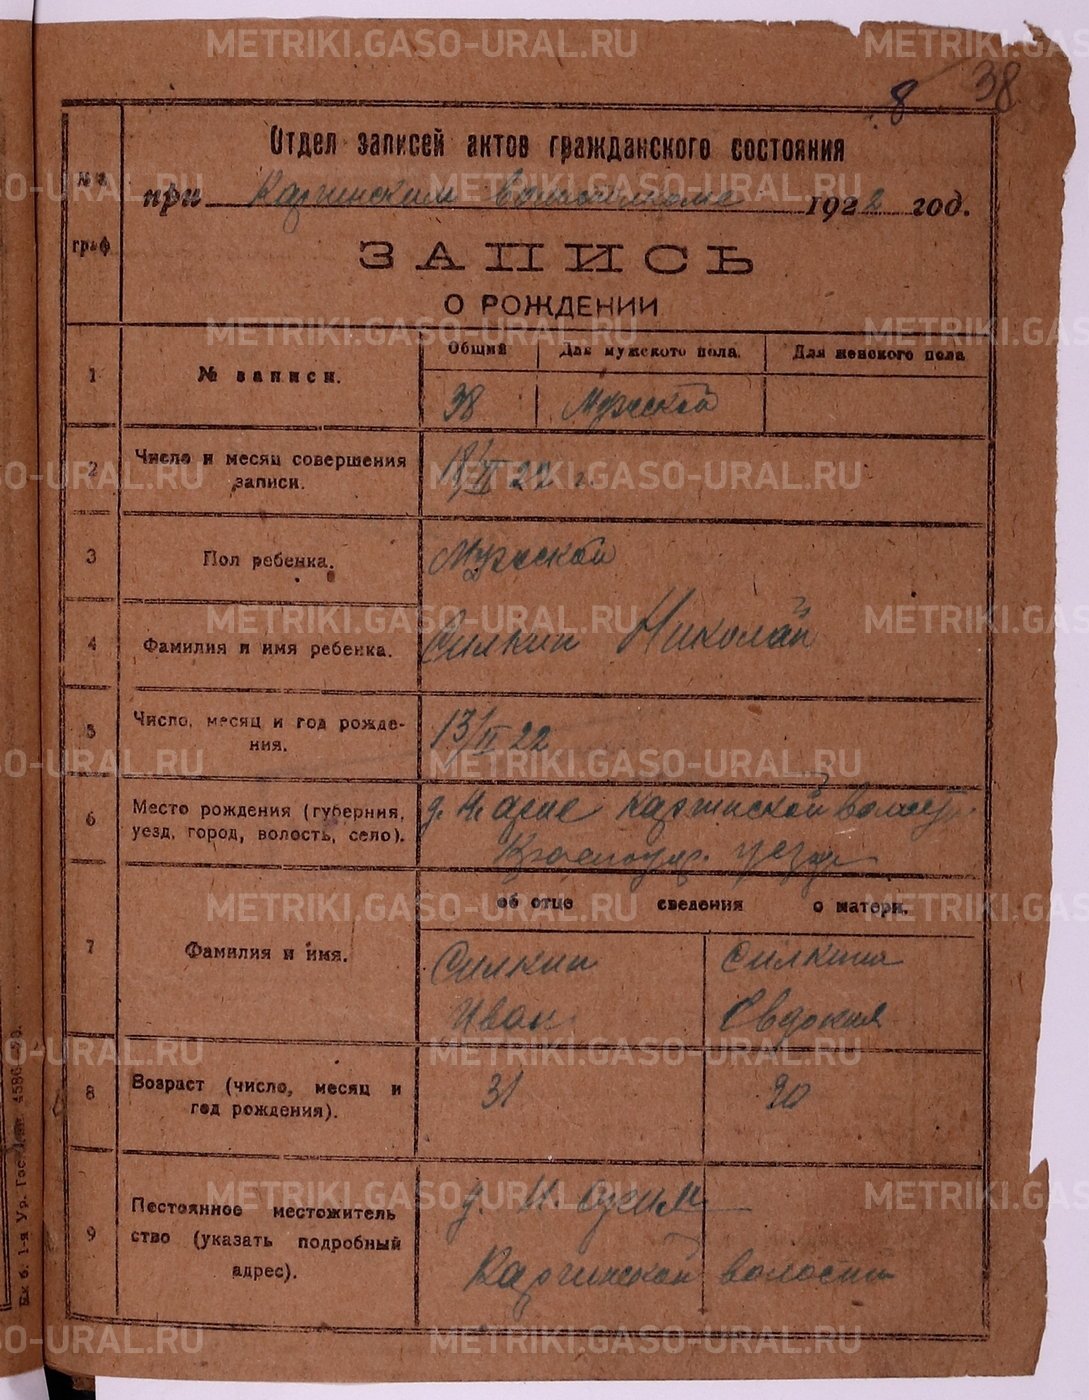 METRIKI.GASO-URAL.RU
8 38
№№ граф.
Отдел записей актов гражданского состояния
при Каргинским волисполкоме 1922 год.
ЗАПИСЬ
О РОЖДЕНИИ
1 № записи.
Общий Для мужского пола. Для женского пола
38 Мужской
2 Число и месяц совершения
записи.
18/II 22 г.
3 Пол ребенка.
Мужской
4 Фамилия и имя ребенка.
Силкин Николай
5 Число, месяц и год рожде-
ния.
13/II 22
6 Место рождения (губерния,
уезд, город, волость, село).
д. Каргинской волост.
уезда
об отце сведения о матери.
7 Фамилия и имя.
Силкин Силкина
Иван Евдокия
8 Возраст (число, месяц и
год рождения).
31
9 Постоянное местожитель
ство (указать подробный
адрес).
д.
Каргинской волости